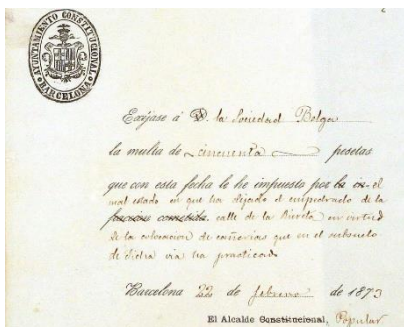 AYUNTAMIENTO CONSTITUCIONAL
BARCELONA
Exíjase á D. la Sociedad Belga
la multa de cincuenta pesetas
que con esta fecha le he impuesto por la in- el
mal estado en que ha dejado el empedrado de la
fracción cometida calle de la Riereta en virtud
de la colocacion de cañerias que en el subsuelo
de dicha via ha practicado
Barcelona 22 de febrero de 1873
El Alcalde Constitucional, Popular